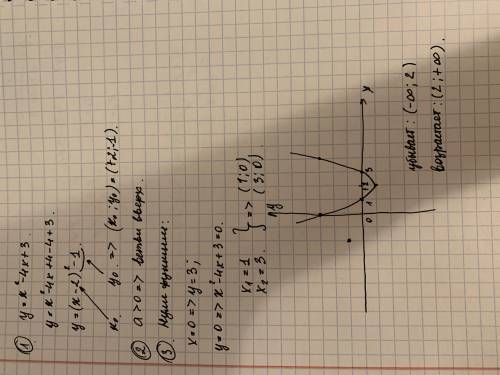 ① y = x² - 4x + 3.
y = x² - 4x + 4 - 4 + 3
y = (x - 2)² - 1
x₀ y₀ => (x₀; y₀) = (+2; -1).
② a > 0 => ветви вверх.
③ Нули функции:
x = 0 => y = 3;
y = 0 => x² - 4x + 3 = 0.
x₁ = 1
x₂ = 3. } => (1; 0)
(3; 0)
y
0 1 2 3 x
убывает: (-∞; 2)
возрастает: (2; +∞).